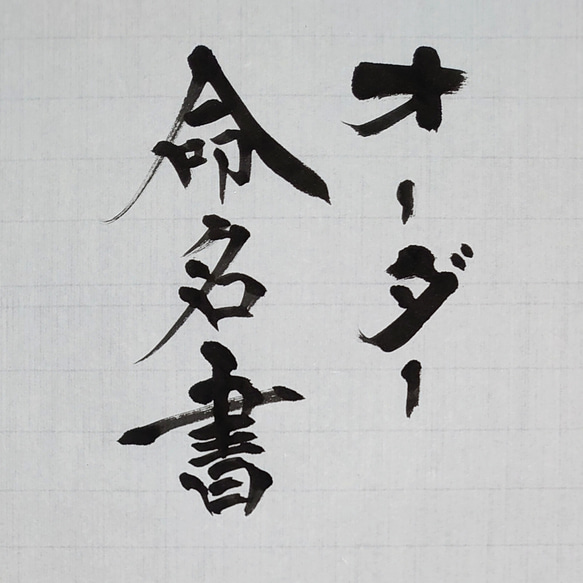 オーダー
命名書